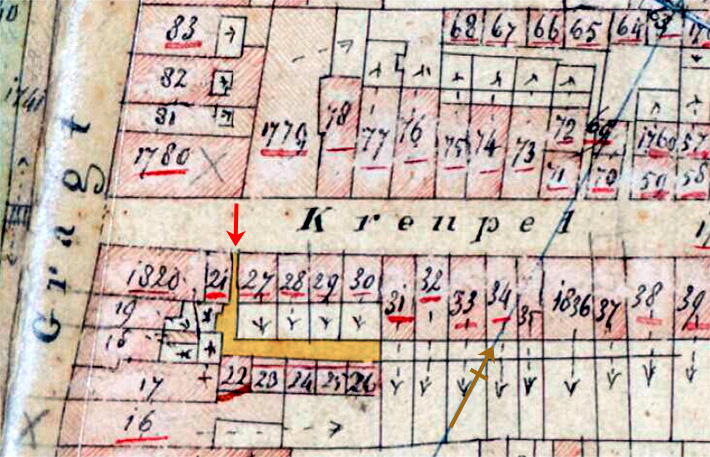 68 67 66 65 64 63
83
82
81
1780
1779
78
77
76
75
74
73
72
71
69
70
1760
57
59
58
Gragt
Krenpel
1820
21
27
28
29
30
31
32
33
34
35
1836
37
38
39
19
18
17
22
23
24
25
26
16